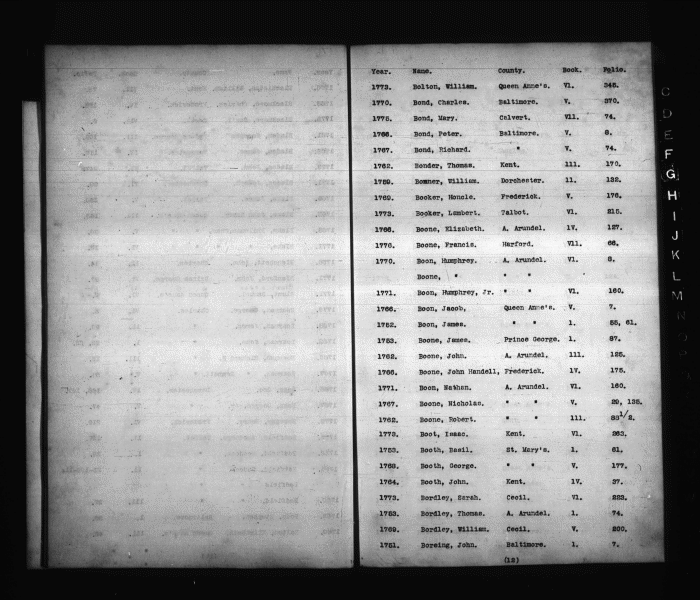 Year. Name. County. Book. Folio.
1773. Bolton, William. Queen Anne's. Vl. 345.
1770. Bond, Charles. Baltimore. V. 370.
1775. Bond, Mary. Calvert. Vll. 74.
1766. Bond, Peter. Baltimore. V. 8.
1767. Bond, Richard. " V. 74.
1762. Bonder, Thomas. Kent. lll. 170.
1759. Bonner, William. Dorchester. ll. 132.
1769. Booker, Honcle. Frederick. V. 176.
1773. Booker, Lambert. Talbot. Vl. 215.
1766. Boone, Elizabeth. A. Arundel. lV. 127.
1776. Boone, Francis. Harford. Vll. 66.
1770. Boon, Humphrey. A. Arundel. Vl. 8.
Boone, " " "
1771. Boon, Humphrey, Jr. " " Vl. 160.
1766. Boon, Jacob, Queen Anne's. V. 7.
1752. Boon, James. " " l. 55, 61.
1753. Boone, James. Prince George. l. 87.
1762. Boone, John. A. Arundel. lll. 125.
1766. Boone, John Handell, Frederick. lV. 175.
1771. Boon, Nathan. A. Arundel. Vl. 160.
1767. Boone, Nicholas. " " V. 29, 135.
1762. Boone, Robert. " " lll. 83 1/2.
1773. Boot, Isaac. Kent. Vl. 263.
1753. Booth, Basil. St. Mary's. l. 61.
1768. Booth, George. " " V. 177.
1764. Booth, John. Kent. lV. 37.
1773. Bordley, Sarah. Cecil. Vl. 223.
1753. Bordley, Thomas. A. Arundel. l. 74.
1769. Bordley, William. Cecil. V. 200.
1751. Boreing, John. Baltimore. l. 7.
(12)
C
D
E
F
G
H
I
J
K
L
M
N
O
P